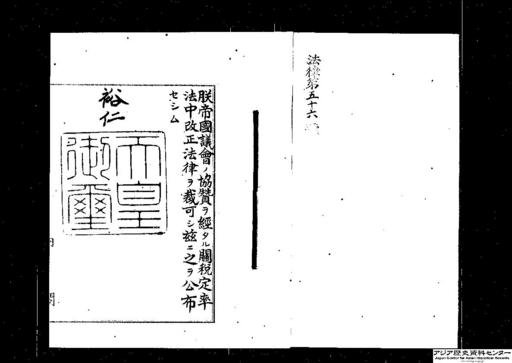 法律第五十六
朕帝國議會ノ協贊ヲ經タル關稅定率
法中改正法律ヲ裁可シ茲ニ之ヲ公布
セシム
裕仁
天皇
御璽
アジア歴史資料センター
Japan Center for Asian Historical Records